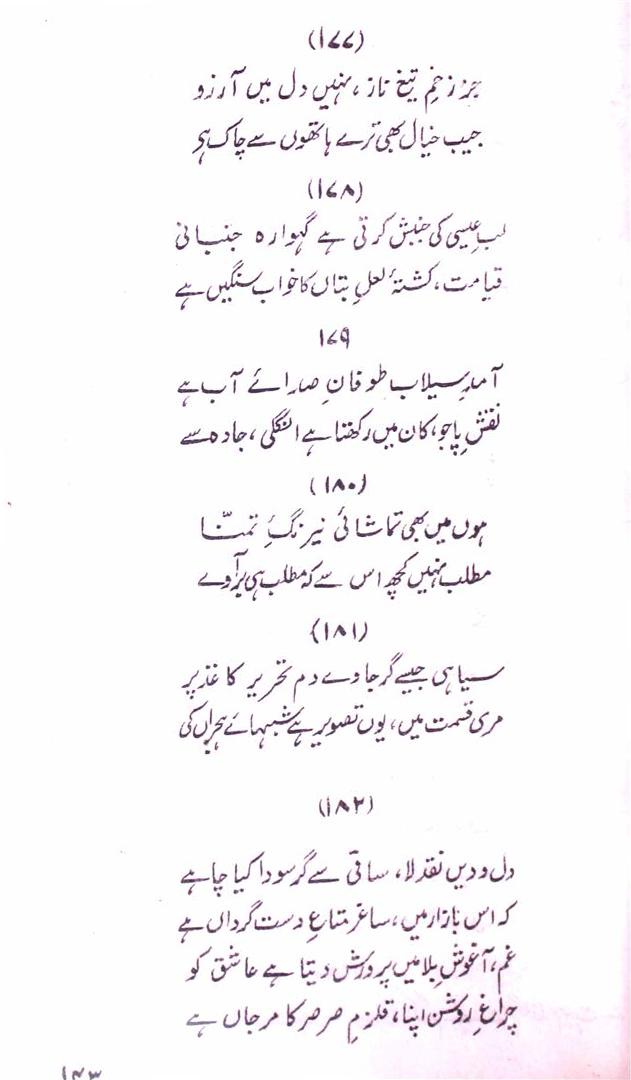 (۱۷۷)
جز زخمِ تیغِ ناز، نہیں دل میں آرزو
جیب خیال بھی ترے ہاتھوں سے چاک ہی
(۱۷۸)
لب عیسیٰ کی جنبش کرتی ہے گہوارہ جنبانی
قیامت، کشتۂ لعلِ بتاں کا خواب سنگیں ہے
۱۷۹
آمدِ سیلاب طوفانِ صدائے آب ہے
نقشِ پا جو، کان میں رکھتا ہے انگلی، جادہ سے
(۱۸۰)
ہوں میں بھی تماشائی نیرنگِ تمنّا
مطلب نہیں کچھ اس سے کہ مطلب ہی بر آوے
(۱۸۱)
سیاہی جیسے گر جاوے دم تحریر کاغذ پر
مری قسمت میں، یوں تصویر ہے شبہائے ہجراں کی
(۱۸۲)
دل و دیں نقد لا، ساقی سے گر سودا کیا چاہے
کہ اس بازار میں، ساغر متاعِ دست گرداں ہے
غم، آغوشِ بلا میں پرورش دیتا ہے عاشق کو
چراغِ روشن اپنا، قلزمِ صرصر کا مرجاں ہے
۱۴۳